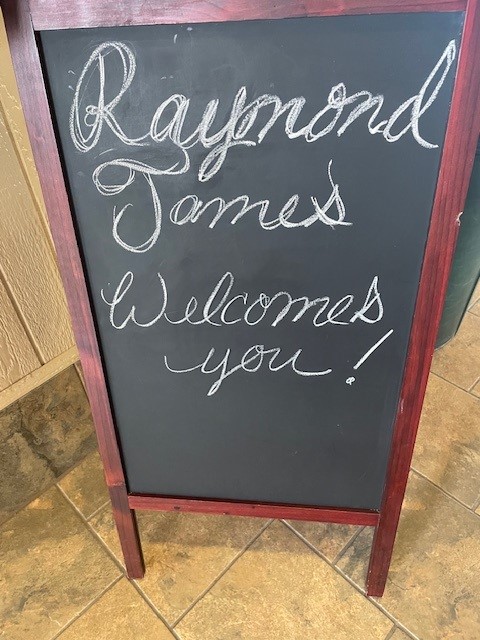 Raymond
James
Welcomes
you!